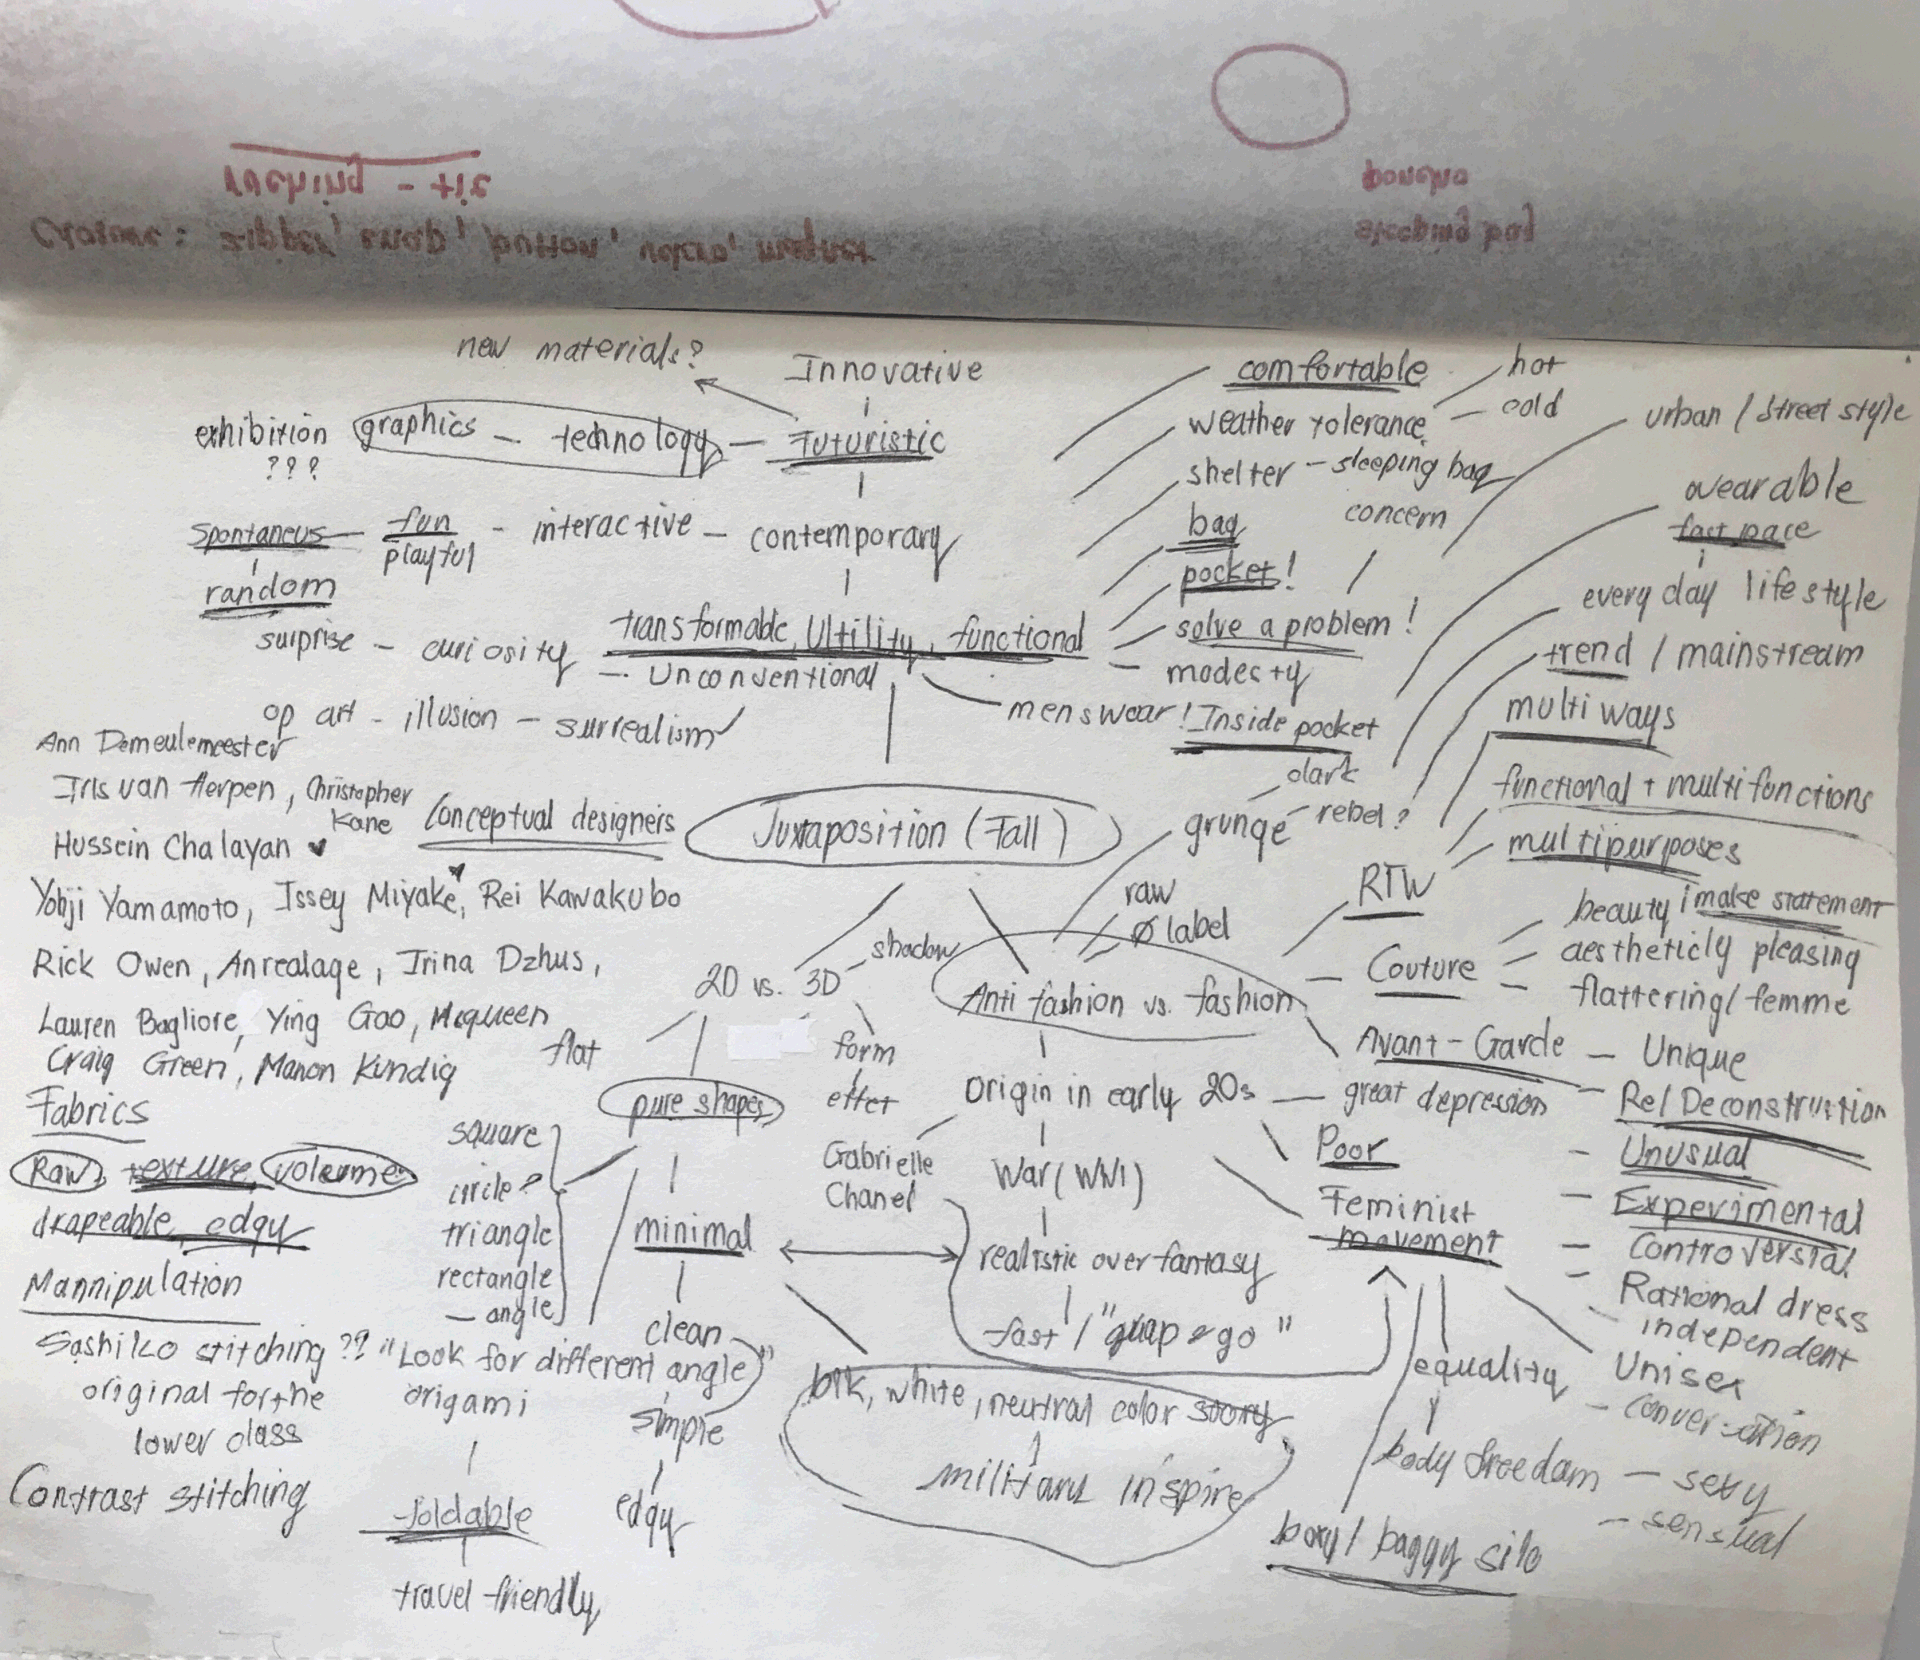 new materials?
Innovative
comfortable
hot
weather tolerance
cold
urban / street style
exhibition
???
graphics — technology — Futuristic
shelter — sleeping bag
wearable
concern
bag
fast pace
Spontaneus — fun - interactive — contemporary
playful
pocket!
random
every day lifestyle
transformable, Ultility, functional
solve a problem!
surprise — curiosity — Unconventional
trend / mainstream
modesty
op art - illusion — surrealism
menswear! Inside pocket
multi ways
Ann Demeulemeester
dark
Iris van Herpen, Christopher Kane
functional + multifunctions
Conceptual designers
Juxaposition (Fall)
grunge
rebel?
Hussein Chalayan ♥
multipurposes
RTW
Yohji Yamamoto, Issey Miyake, Rei Kawakubo
♥
raw
beauty / make statement
Ø label
shadow
aestheticly pleasing
Rick Owen, Anrealage, Irina Dzhus,
2D vs. 3D
Couture
Anti fashion vs. fashion
flattering / femme
Lauren Bagliore, Ying Gao, Mcqueen
flat
form
Avant-Garde — Unique
Craig Green, Manon Kundig
effect
Origin in early 20s — great depression
Re/Deconstruction
Fabrics
pure shapes
square
Poor
Unusual
Raw, texture, volume
Gabrielle
Chanel
War (WW1)
circle?
Feminist
movement
Experimental
drapeable, edgy
triangle
minimal
Controversial
realistic over fantasy
Mannipulation
rectangle
Rational dress
— angle
independent
clean
fast / "grap & go"
Sashiko stitching ??
"Look for different angle"
equality
Unisex
original for the
lower class
origami
blk, white, neutral color story
conversation
simple
body freedom — sexy
military inspire
— sensual
Contrast stitching
foldable
edgy
boxy / baggy silo
travel friendly